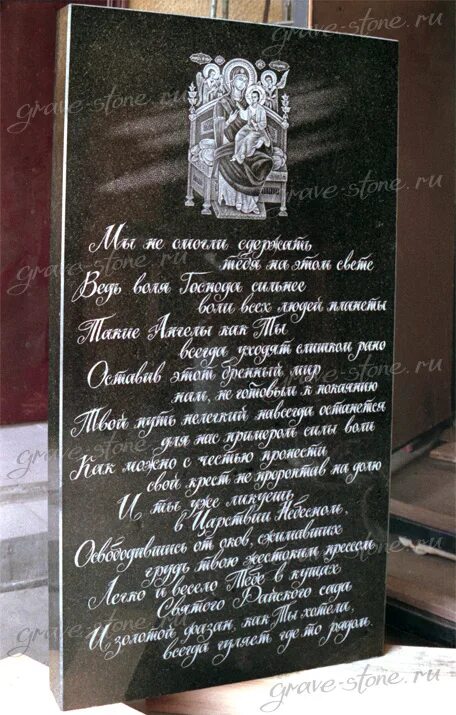 grave-stone.ru
Мы не смогли сдержать
тебя на этом свете
Ведь воля Господа сильнее
воли всех людей планеты
Такие Ангелы как Ты
всегда уходят слишком рано
Оставив этот бренный мир
нам, не готовым к покаянию
Твой путь нелегкий навсегда останется
для нас примером силы воли
Как можно с честью пронести
свой крест не проронтав на долю
И ты уже ликуешь
в Царствии Небесном,
Освободившись от оков, сжимавших
грудь твою жестоким прессом
Легко и весело Тебе в кущах
Святого Райского сада
И золотой фазан, как Ты хотела,
всегда гуляет где то рядом.
grave-stone.ru